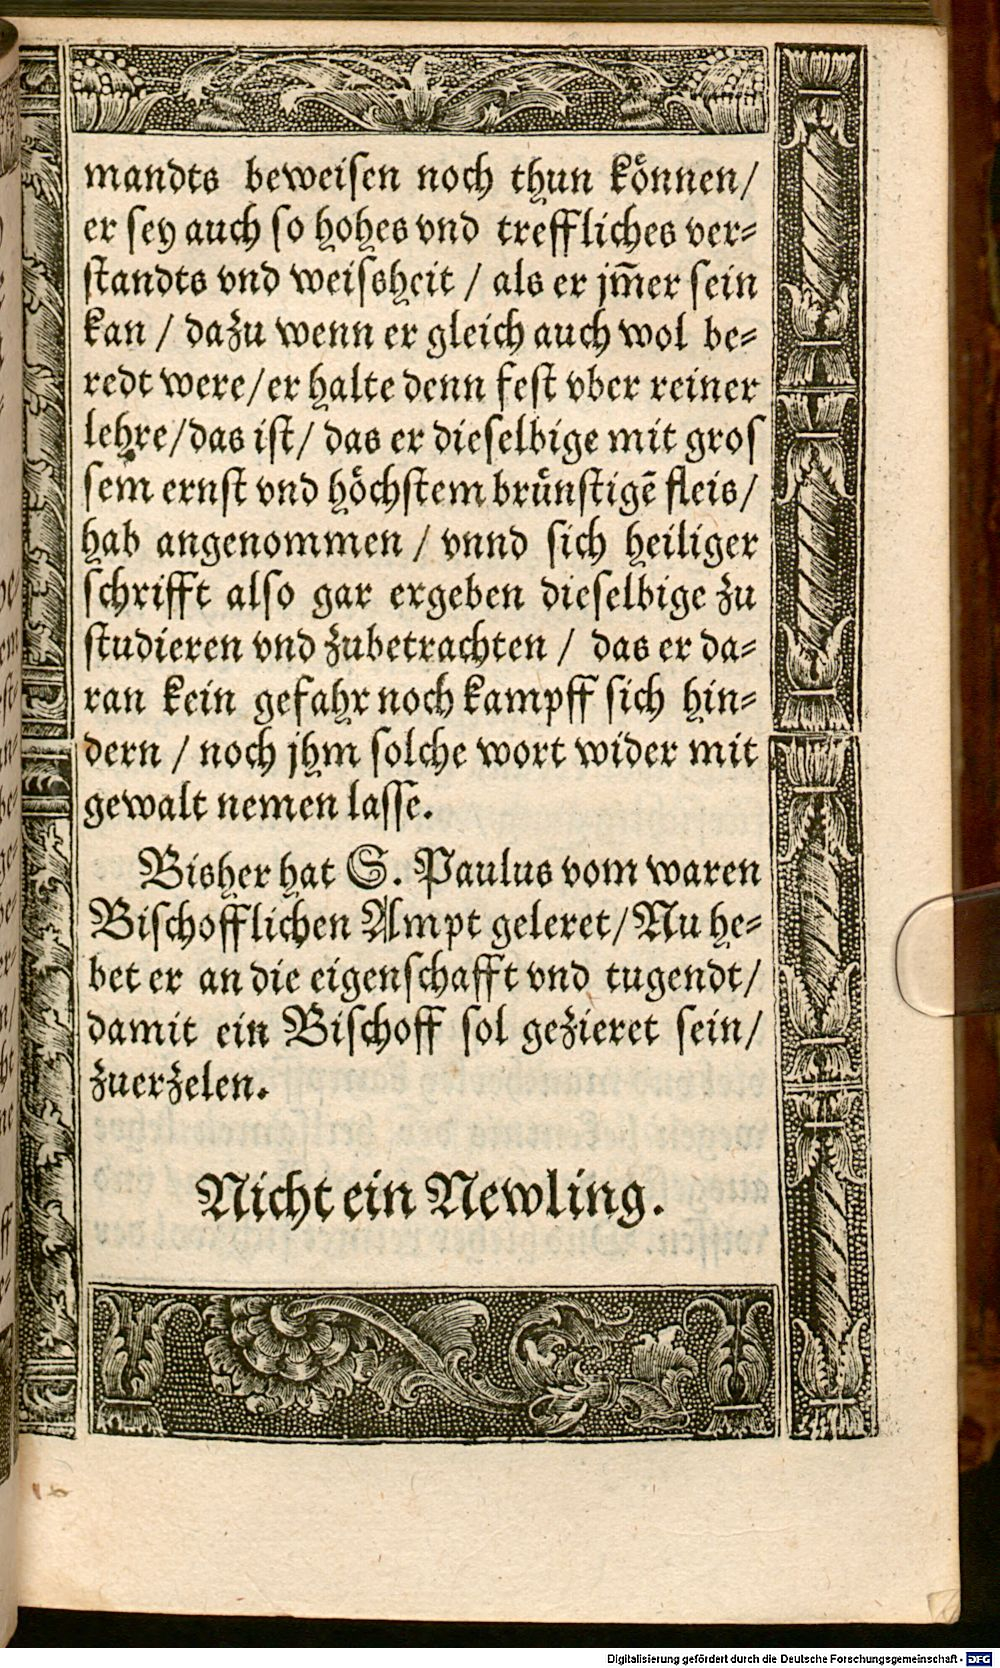 mandts beweisen noch thun koͤnnen/
er sey auch so hohes vnd treffliches ver⸗
standts vnd weissheit / als er jm̃er sein
kan / dazu wenn er gleich auch wol be⸗
redt were/er halte denn fest vber reiner
lehre/das ist/ das er dieselbige mit gros
sem ernst vnd hoͤchstem bruͤnstigẽ fleis/
hab angenommen / vnnd sich heiliger
schrifft also gar ergeben dieselbige zu
studieren vnd zubetrachten / das er da⸗
ran kein gefahr noch kampff sich hin⸗
dern / noch jhm solche wort wider mit
gewalt nemen lasse.
Bisher hat S. Paulus vom waren
Bischofflichen Ampt geleret/Nu he⸗
bet er an die eigenschafft vnd tugendt/
damit ein Bischoff sol gezieret sein/
zuerzelen.
Nicht ein Newling.
Digitalisierung gefördert durch die Deutsche Forschungsgemeinschaft - DFG